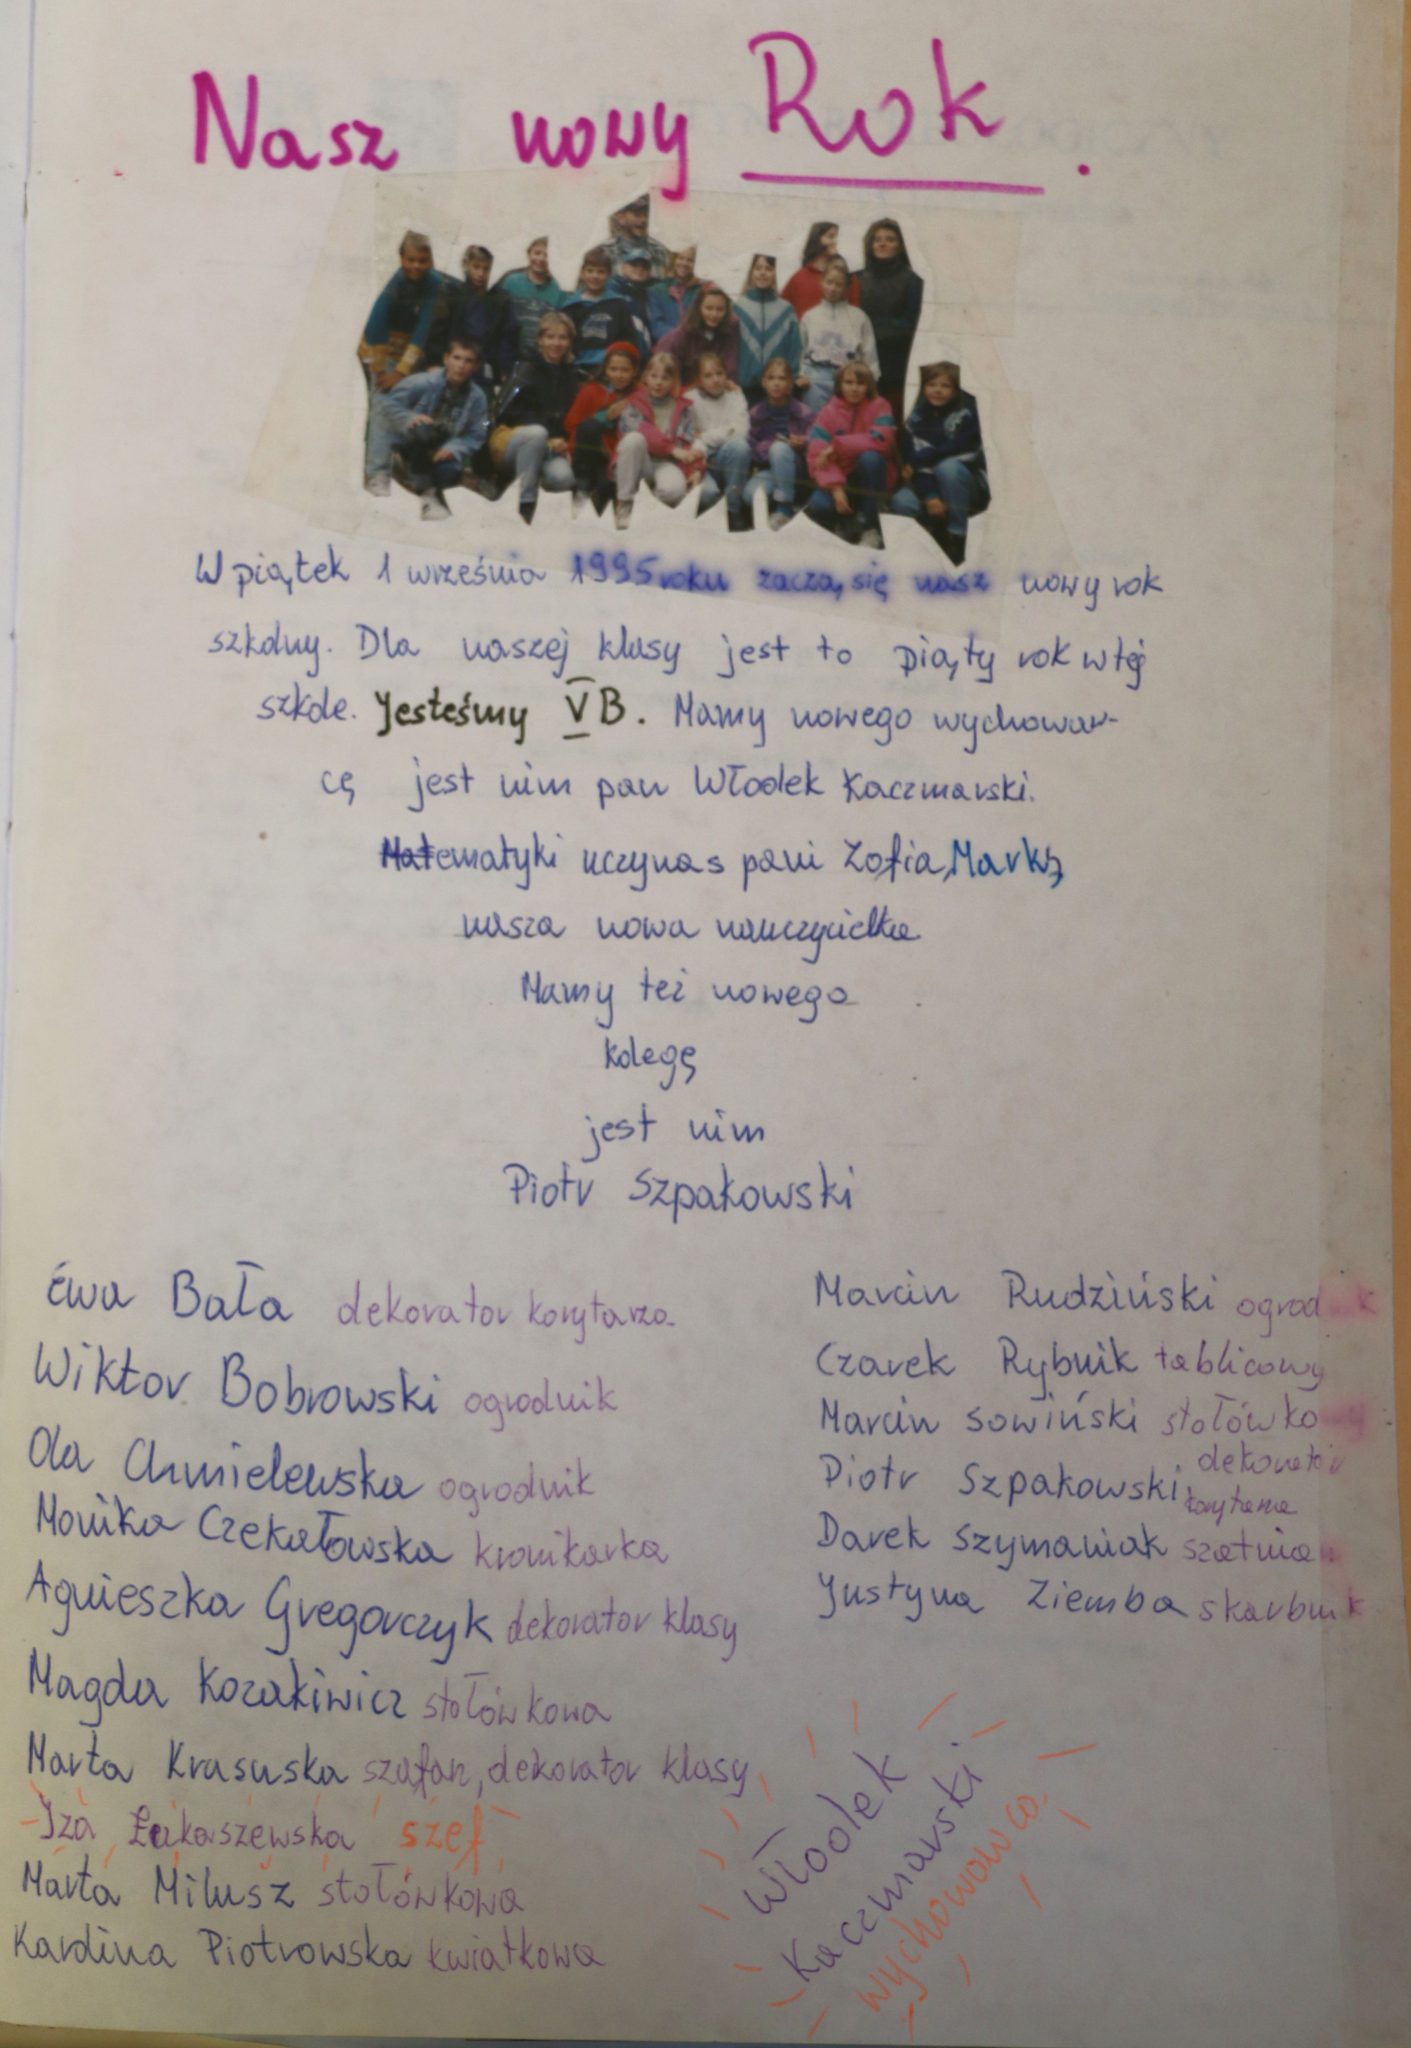 Nasz nowy Rok.
W piątek 1 września 1995 roku zaczą się nasz nowy rok
szkolny. Dla naszej klasy jest to piąty rok w tej
szkole. Jesteśmy V B. Mamy nowego wychowaw-
cę jest nim pan Włodek Kaczmarski.
Matematyki uczy nas pani Zofia, Marks,
nasza nowa nauczycielka
Mamy też nowego
kolegę
jest nim
Piotr Szpakowski
Ewa Bała dekorator korytarza
Wiktor Bobrowski ogrodnik
Ola Chmielewska ogrodnik
Monika Czekałowska kronikarka
Agnieszka Gregorczyk dekorator klasy
Magda Kozakiwicz stołówkowa
Marta Krasuska szafarz, dekorator klasy
Iza Łukaszewska szef
Marta Milusz stołówkowa
Karolina Piotrowska kwiatkowa
Marcin Rudziński ogrodnik
Czarek Rybnik tablicowy
Marcin Sowiński stołówkowy
Piotr Szpakowski dekorator
korytarza
Darek Szymaniak szatnia
Justyna Ziemba skarbnik
Włodek
Kaczmarski
wychowawca